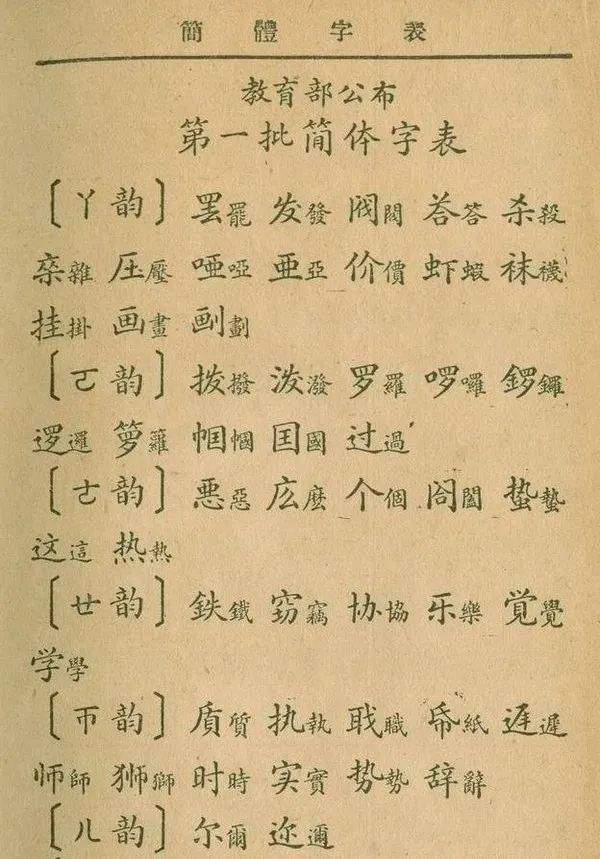 簡體字表
教育部公布
第一批简体字表
〔ㄚ韵〕罢罷 发發 阀閥 荅答 杀殺
杂雜 压壓 哑啞 亚亞 价價 虾蝦 袜襪
挂掛 画畫 㓰劃
〔ㄛ韵〕拨撥 泼潑 罗羅 啰囉 锣鑼
逻邏 箩籮 帼幗 囯國 过過
〔ㄜ韵〕恶惡 庅麼 个個 阖闔 蛰蟄
这這 热熱
〔ㄝ韵〕鉄鐵 窃竊 协協 乐樂 覚覺
学學
〔ㄭ韵〕质質 执執 職 帋紙 遅遲
师師 狮獅 时時 实實 势勢 辞辭
〔ㄦ韵〕尔爾 迩邇